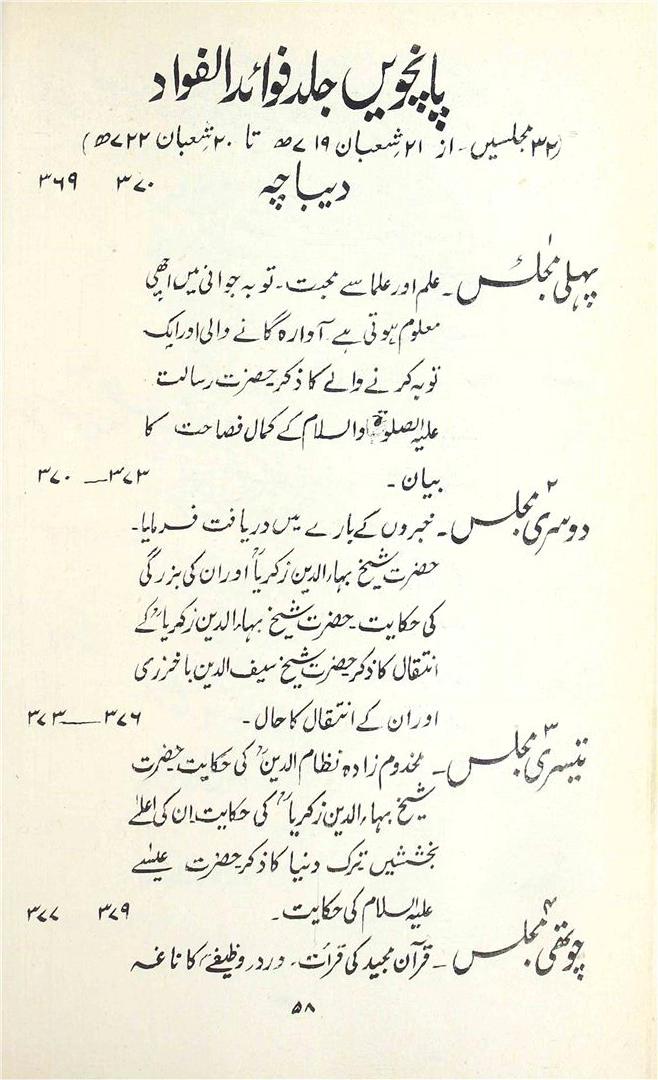 پانچویں جلد فوائد الفواد
(۳۲ مجلسیں۔ از ۲۱ شعبان ۷۱۹ھ تا ۲۰ شعبان ۷۲۲ھ)
دیباچہ ۳۷۰ ۳۶۹
پہلی مجلس ۱۔ علم اور علما سے محبت۔ توبہ جوانی میں اچھی
معلوم ہوتی ہے۔ آوارہ گانے والی اور ایک
توبہ کرنے والے کا ذکر حضرت رسالت
علیہ الصلوٰۃ والسلام کے کمال فصاحت کا
بیان۔ ۳۷۳—۳۷۰
دوسری مجلس ۲۔ خبروں کے بارے میں دریافت فرمایا۔
حضرت شیخ بہاء الدین زکریاؒ اور ان کی بزرگی
کی حکایت۔ حضرت شیخ بہاء الدین زکریاؒ کے
انتقال کا ذکر حضرت شیخ سیف الدین باخرزی
اور ان کے انتقال کا حال۔ ۳۷۶—۳۷۳
تیسری مجلس ۳۔ مخدوم زادہ نظام الدینؒ کی حکایت حضرت
شیخ بہاء الدین زکریاؒ کی حکایت ان کی اعلےٰ
بخششیں ترک دنیا کا ذکر حضرت عیسےٰ
علیہ السلام کی حکایت۔ ۳۷۹ ۳۷۷
چوتھی مجلس ۴۔ قرآن مجید کی قرائت۔ ورد وظیفے کا ناغہ
۵۸